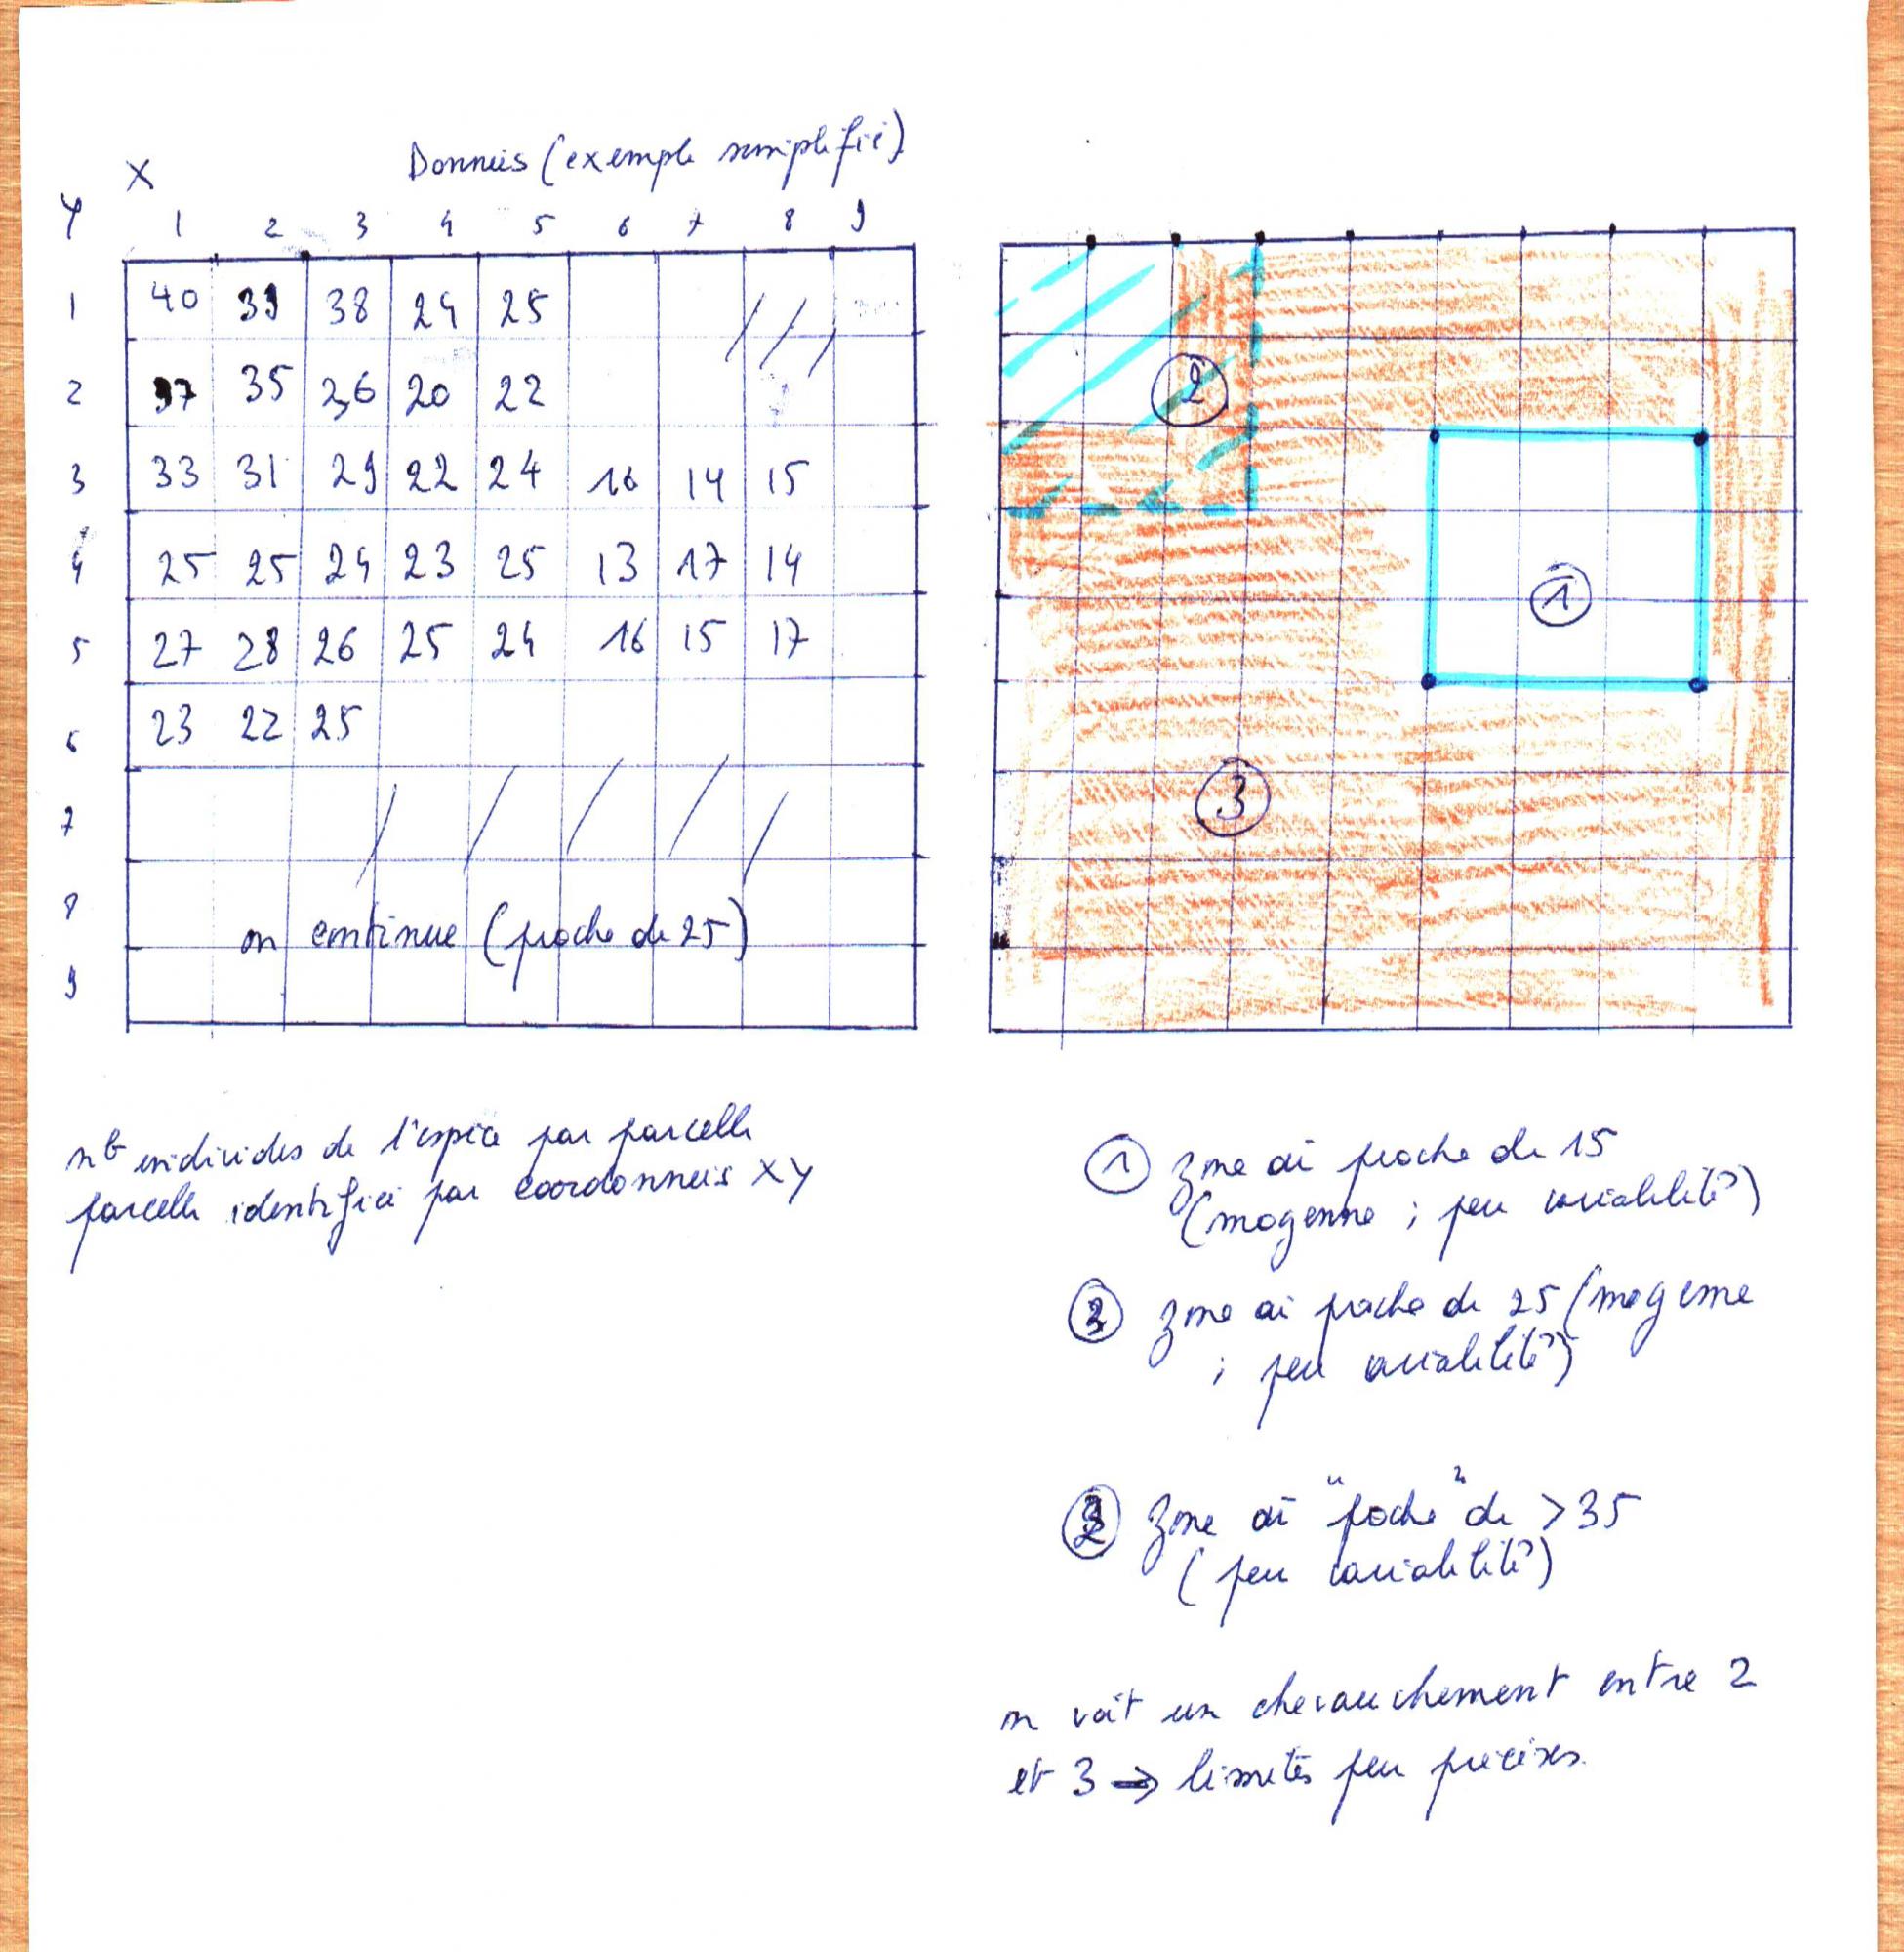 Données (exemple simplifié)
X
Y 1 2 3 4 5 6 7 8 9
1 40 39 38 24 25
2 37 35 36 20 22
3 33 31 29 22 24 16 14 15
4 25 25 24 23 25 13 17 14
5 27 28 26 25 24 16 15 17
6 23 22 25
7
8 on continue (proche de 25)
9
2
1
3
nb individus de l'espèce par parcelle
parcelle identifiée par coordonnées XY
1 zone où proche de 15
(moyenne ; peu variabilité)
3 zone où proche de 25 (moyenne
; peu variabilité)
2 zone où "proche" de > 35
(peu variabilité)
on voit un chevauchement entre 2
et 3 → limites peu précises.